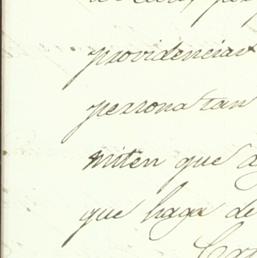 providencias
persona tan
miten que
que haga de